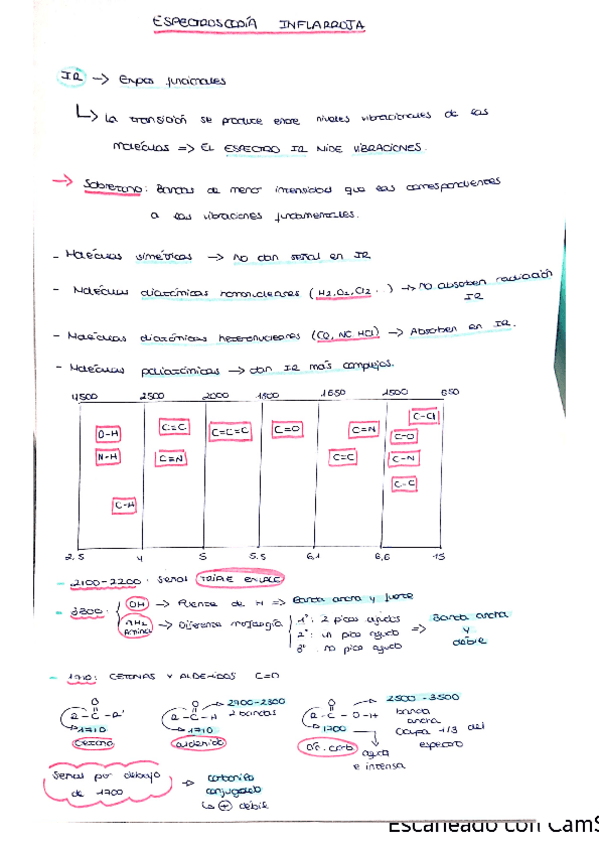 ESPECTROSCOPÍA INFLARROJA
IR → Grupos funcionales
↳ La transición se produce entre niveles vibracionales de las
moléculas => EL ESPECTRO IR MIDE VIBRACIONES.
→ Sobretono: Bandas de menor intensidad que las correspondientes
a las vibraciones fundamentales.
- Moléculas simétricas → No dan señal en IR
- Moléculas diatómicas homonucleares (H2, O2, Cl2 . ) → no absorben radiación
IR
- Moléculas diatómicas heteronucleares (CO, NC, HCl) → Absorben en IR.
- Moléculas poliatómicas → dan IR más complejos.
4500 2500 2000 1800 1650 1500 650
C-Cl
O-H C≡C C=C=C C=O C=N C-O
N-H C≡N C=C C-N
C-C
C-H
2,5 4 5 5.5 6,1 6,6 15
- 2100-2200: señal TRIPLE ENLACE
- 3300: OH → Puente de H => Banda ancha y fuerte
NH2 Aminas → Diferente morfología 1ª: 2 picos agudos
2ª: un pico agudo => Banda ancha y débil
3ª: no pico agudo
- 1710: CETONAS Y ALDEHIDOS C=O
O O → 2700-2800 O → 2500-3500
R-C-R' R-C-H 2 bandas R-C-O-H banda
ancha
1710 1710 1700 Ocupa 1/3 del
cetona aldehido Ác. carb aguda espectro
e intensa
Señal por debajo
de 1700 → carbonilo
conjugado
↳ ⊕ débil
Escaneado con CamS